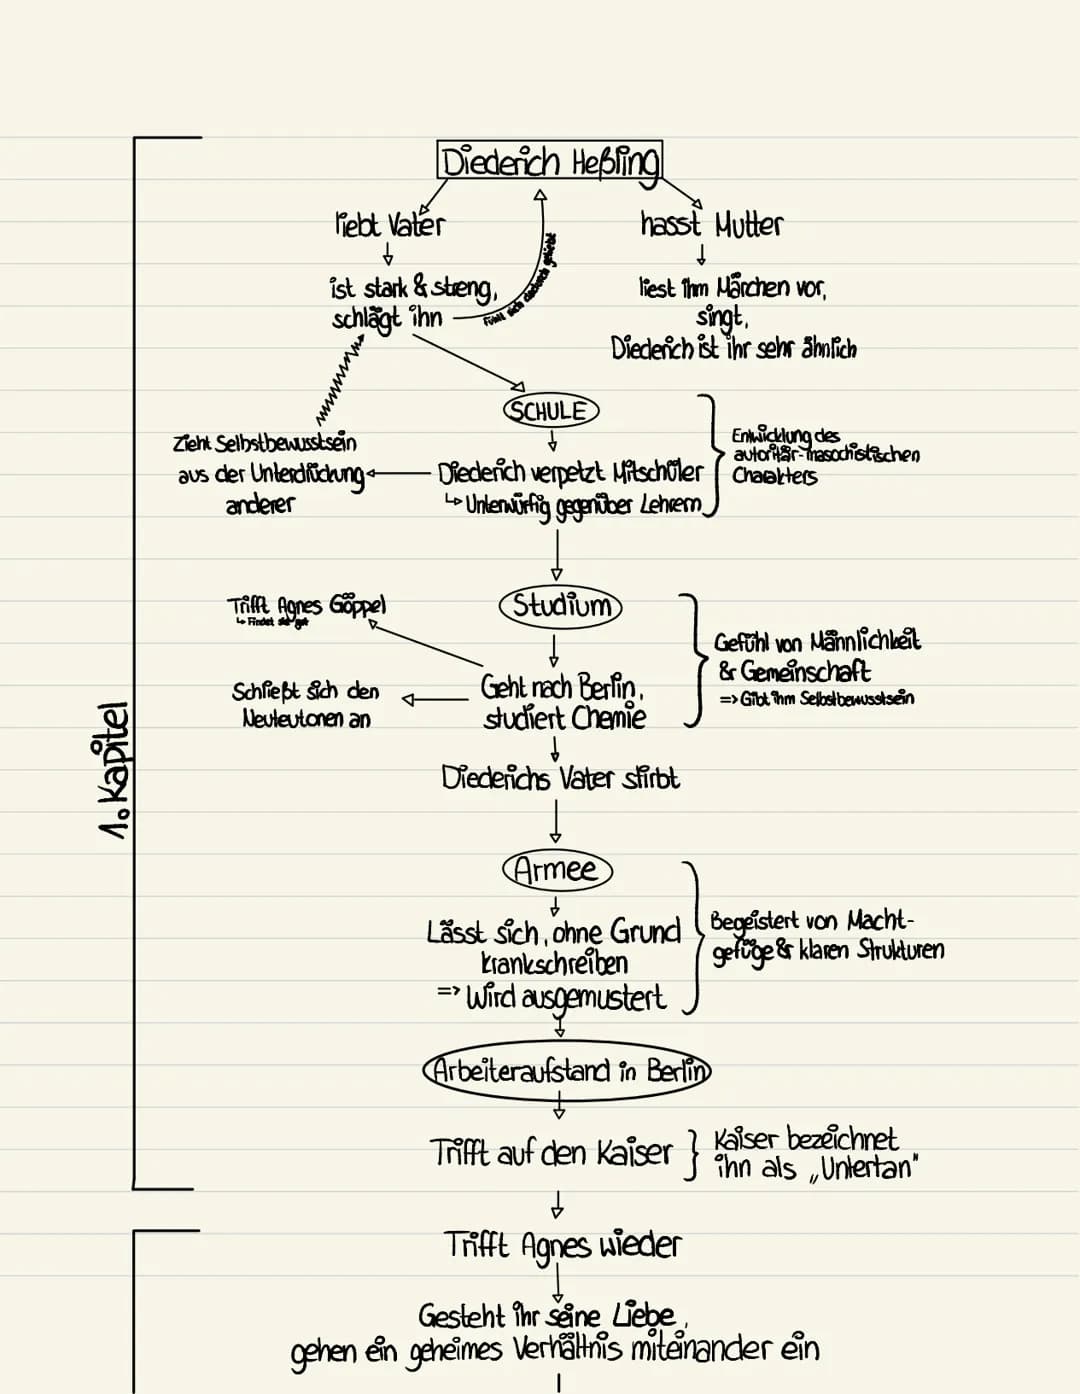 Diederich Heßling
liebt Vater
hasst Mutter
ist stark & streng,
schlägt ihn
Fühlt sich dadurch geliebt
liest ihm Märchen vor,
singt,
Diederich ist ihr sehr ähnlich
SCHULE
Diederich verpetzt Mitschüler
↳ Unterwürfig gegenüber Lehrern
Zieht Selbstbewusstsein
aus der Unterdrückung
anderer
Entwicklung des
autoritär-masochistischen
Charakters
Studium
Trifft Agnes Göppel
↳ Findet sie gut
Geht nach Berlin,
studiert Chemie
Schließt sich den
Neuteutonen an
Gefühl von Männlichkeit
& Gemeinschaft
=> Gibt ihm Selbstbewusstsein
Diederichs Vater stirbt
Armee
Lässt sich, ohne Grund
krankschreiben
=> Wird ausgemustert
Begeistert von Macht-
gefüge & klaren Strukturen
Arbeiteraufstand in Berlin
Trifft auf den Kaiser
Kaiser bezeichnet
ihn als „Untertan"
1. Kapitel
Trifft Agnes wieder
Gesteht ihr seine Liebe,
gehen ein geheimes Verhältnis miteinander ein